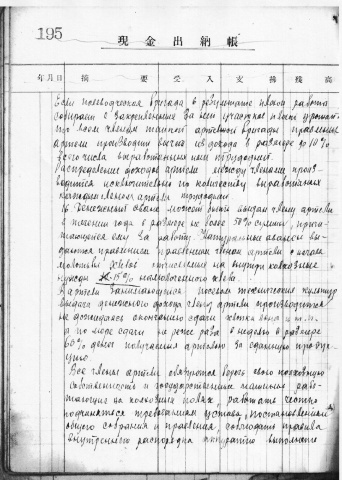 195
現金出納帳
年月日 摘要 受入 支拂 残高
Если полеводческая бригада в результате плохой работы
собирает с закрепленного за ней участка ниже урожай
то всем членам такой артельной бригады правление
артели производит вычет из дохода в размере до 10%
из числа выработанных ими трудодней.
Распределение доходов артели между членами произ-
водится исключительно по количеству выработанных
каждым членом артели трудодней.
16. Денежный аванс может быть выдан члену артели
в течении года в размере не более 50% суммы, прича-
тающейся ему за работу. Натуральные авансы вы-
даются правлением членам артели с начала
молотьбы хлебов на внутри колхозные
нужды 15% намолоченного хлеба.
В артелях посевом технических культур
выдача денежного дохода членам артели производится
не дожидаясь окончания сдачи хлопка льна и т.п.
а по мере сдачи не реже раза в неделю в размере
60% денег получаемых артелью за сданную продук-
цию.
Все члены артели обязуются беречь свою колхозную
собственность и государственные машины рабо-
тающие на колхозных полях, работать честно
подчиняться требованиям устава, постановлениям
общего собрания и правления, соблюдать правила
внутреннего распорядка аккуратно выполнять